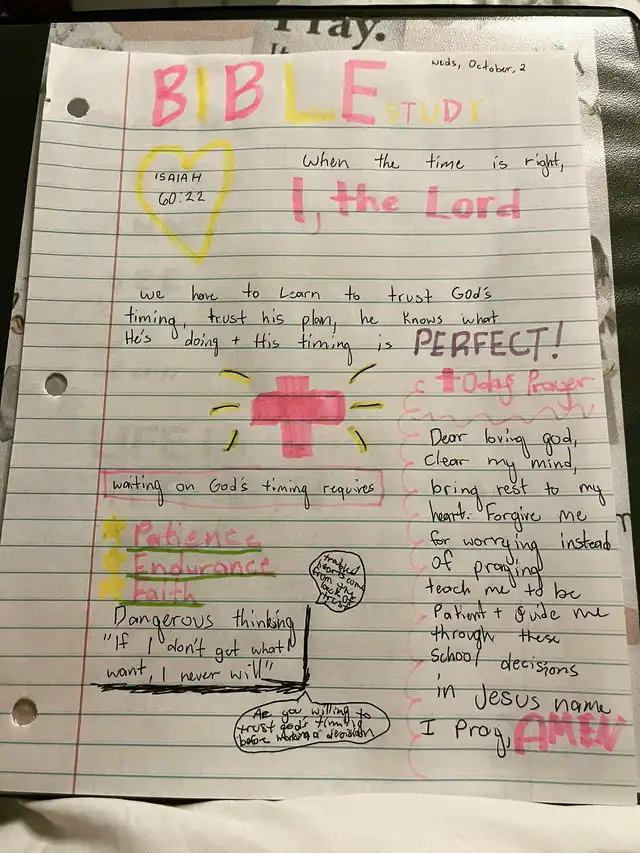 Pray.
It
Weds, October, 2
BIBLE STUDY
ISAIAH
60:22
When the time is right,
I, the Lord
we have to Learn to trust God's
timing, trust his plan, he knows what
He's doing + His timing is PERFECT!
Todays Prayer
waiting on God's timing requires
Patience
Endurance
Faith
troubled
hearts come
from the
lack of
trust
Dangerous thinking
"If I don't get what I
want, I never will"
Are you willing to
trust god's timing
before making a decision
Dear loving god,
Clear my mind,
bring rest to my
heart. Forgive me
for worrying instead
of praying
teach me to be
Patient + Guide me
through these
School decisions
in Jesus name
I Pray, AMEN